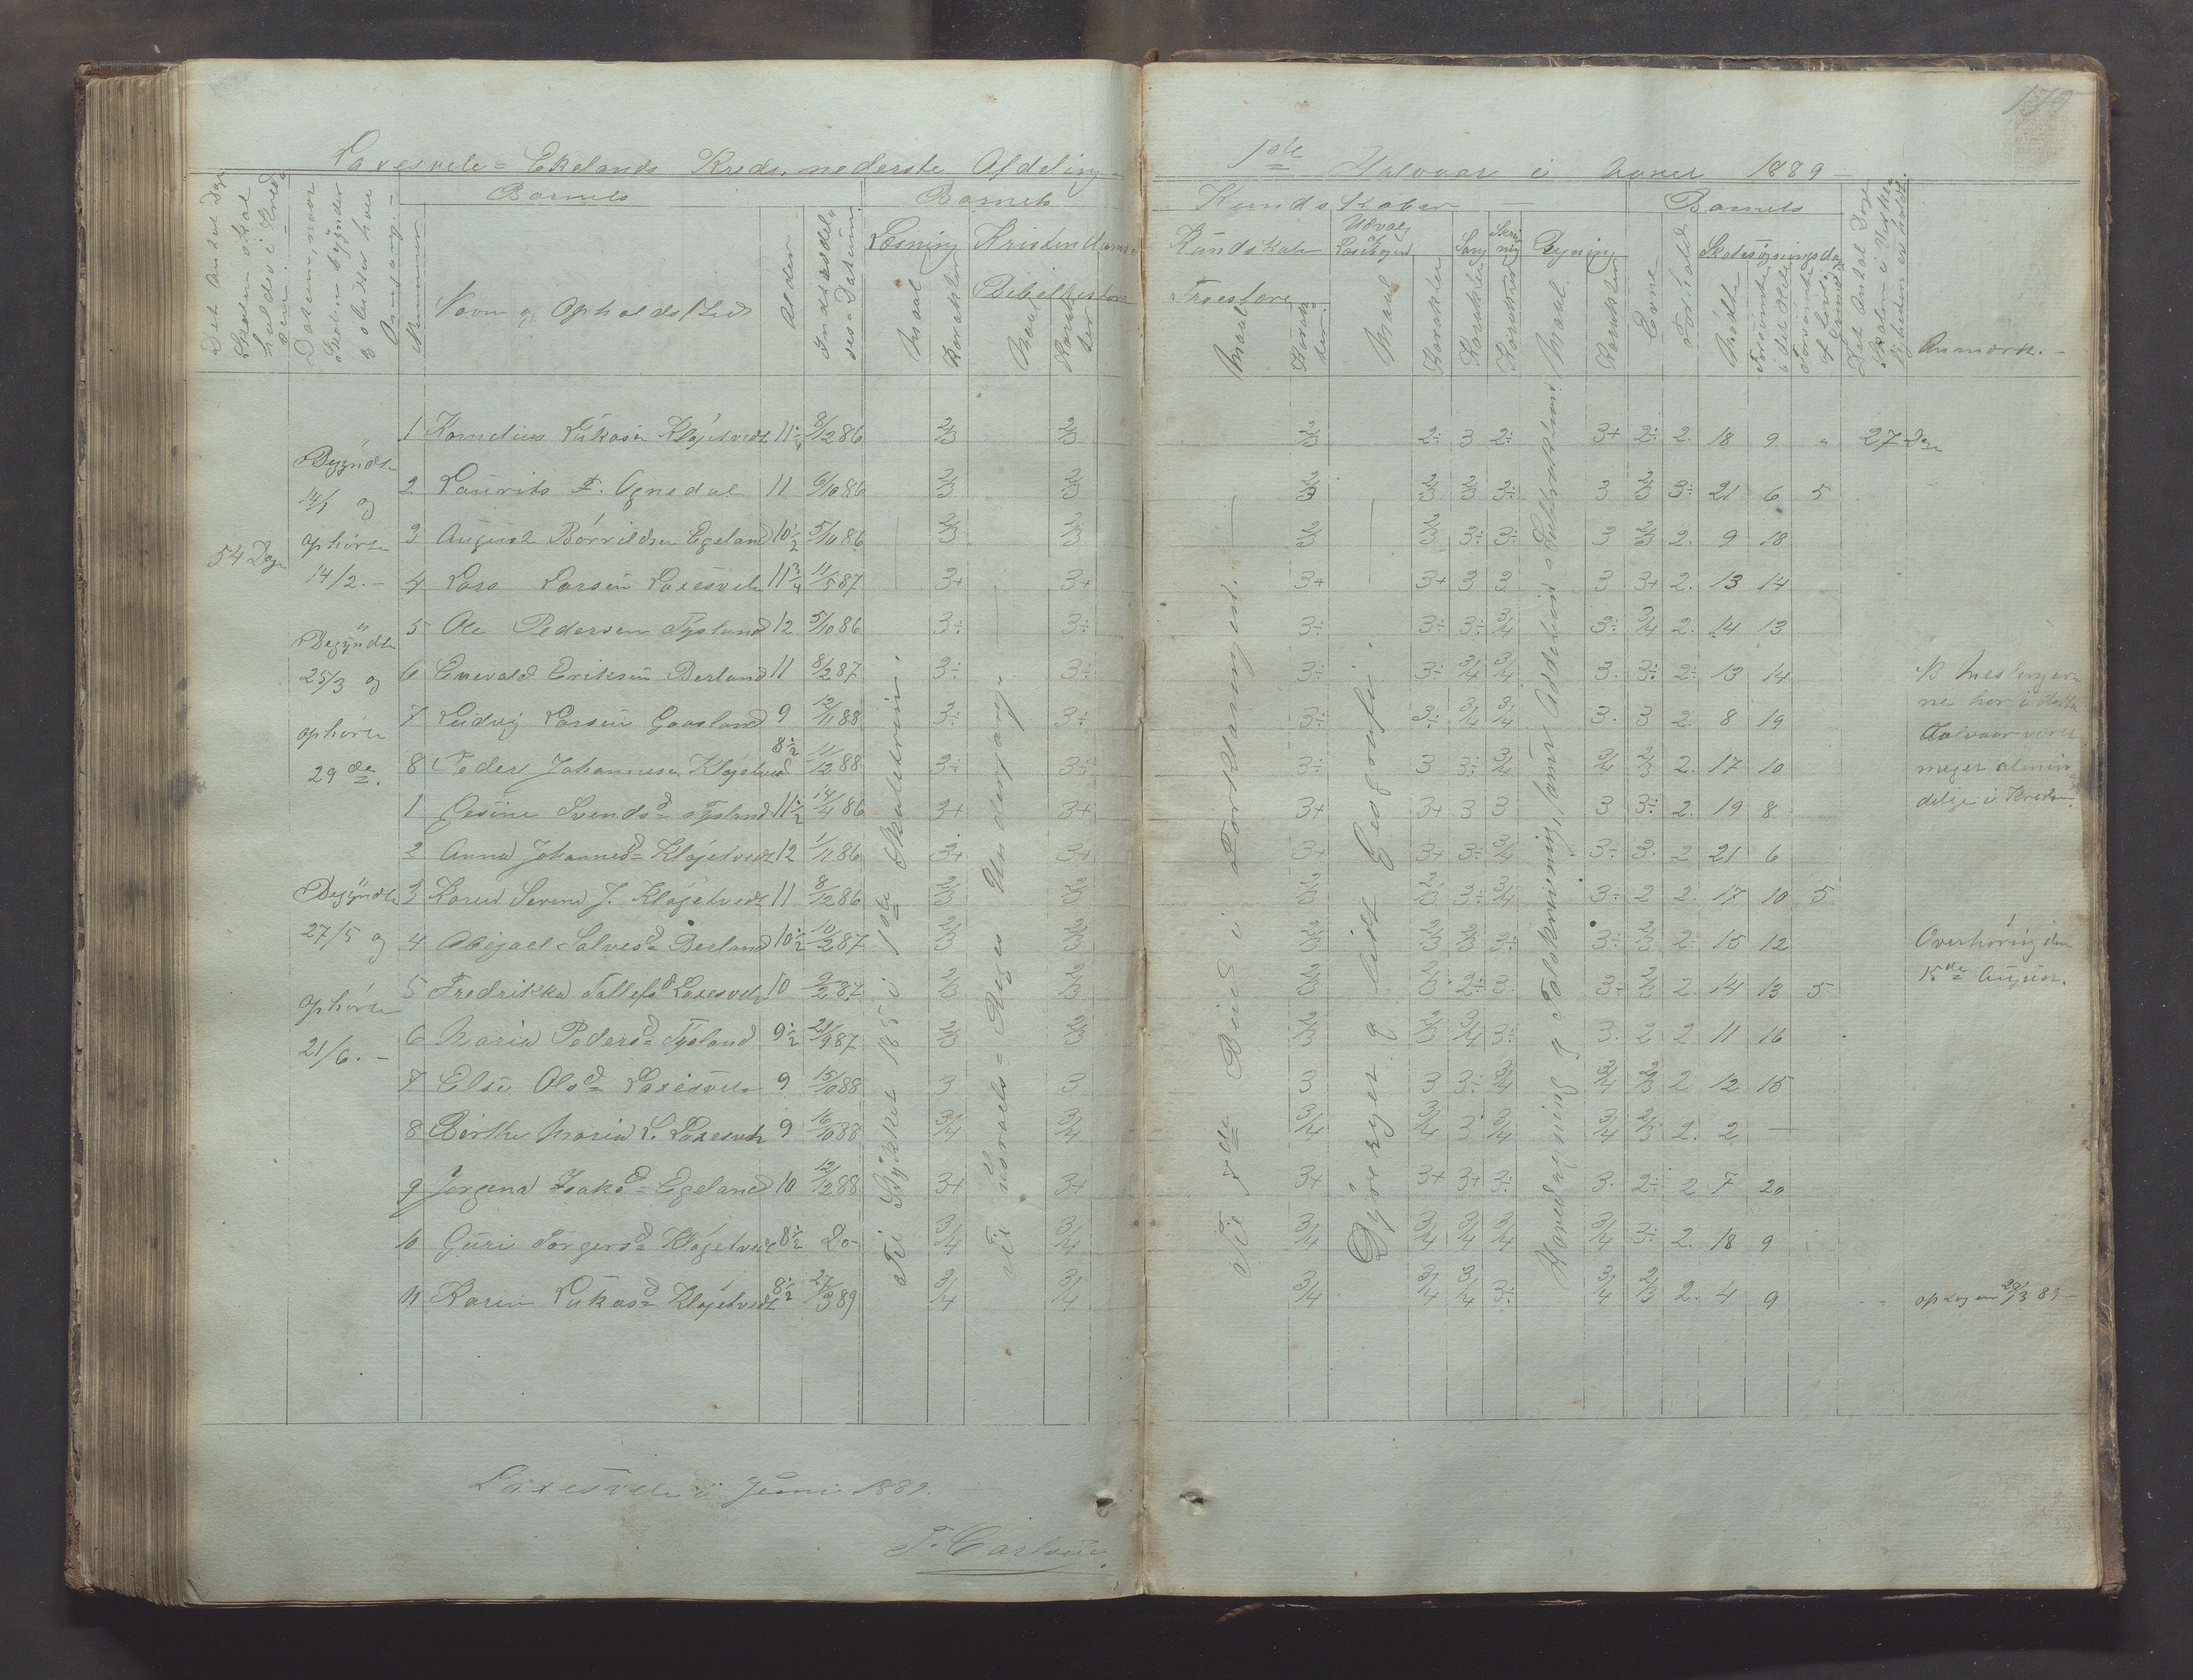 179
Laxesvele = Ekelands Kreds, nederste Afdeling -
1ste Halvaar i Aaret 1889 -
Barnets
Barnets
Kundskaber -
Barnets
Det Antal Dage Skolen skal holdes i Kredsen.
Datum, naar Skolen begynder og slutter hver Omgang. -
Nummer
Navn og Opholdssted
Alder
Indtrædelses-Datum.
Læsning
Kristendoms-
Kundskab
Udvalg af Læsebogen
Sang
Skrivning
Regning
Bibelhistorie
Troeslære
Maal
Karakter
Maal
Karakter
Maal
Karakter.
Maal
Karakter
Karakter
Karakter
Maal.
Karakter
Evne
Forhold
Skolesøgningsdage
Mødte
Forsømte i det Hele
Forsømte af lovlig Grund
Det Antal Dage Skolen i Virkeligheden er holdt.
Anmærk. -
54 Dage
Begyndte
14/1 og
ophørte
14/2. -
Begyndte
25/3 og
ophørte
29de.
Begyndte
27/5 og
ophørte
21/6. -
Til Stykket 185 i 1ste Skoletrin.
Til Israels = Riges Undergang. -
Til 7de Bud i Forklaringen.
Dyreriget og lidt Geografi.
Hovedregning og Talskrivning, samt Addition & Subtraktion.
1 Kornelius Lukasen Kløgetvedt 11 1/2 8/12 86 2/3 2/3 2/3 2÷ 3 2÷ 3+ 2÷ 2. 18 9 " 27 Dage
2 Laurits T. Ognedal 11 6/10 86 2/3 2/3 2/3 2/3 2/3 3÷ 3 2/3 3÷ 21 6 5
3 August Børrildsen Egeland 10 1/2 5/10 86 2/3 2/3 2/3 2/3 3÷ 3÷ 3 2/3 2. 9 18
4 Lars Larsen Laxesvele 11 3/4 11/5 87 3+ 3+ 3+ 3+ 3 3 3 3+ 2. 13 14
5 Ole Pedersen Tysland 12 5/10 86 3÷ 3÷ 3÷ 3÷ 3÷ 3/4 3÷ 3/4 2. 14 13
6 Enevald Eriksen Berland 11 8/2 87 3÷ 3÷ 3÷ 3÷ 3/4 3/4 3. 3÷ 2÷ 13 14
7 Ludvig Larsen Gaasland 9 12/11 88 3÷ 3÷ 3÷ 3÷ 3/4 3/4 3. 3 2. 8 19
8 Peder Johannesen Kløgetvedt 8 1/2 11/12 88 3÷ 3÷ 3÷ 3 3÷ 3/4 3/4 2/3 2. 17 10
1 Gesine Svendsd Tysland 11 1/2 14/4 86 3+ 3+ 3+ 3+ 3 3 3 3÷ 2. 19 8
2 Anna Johannesd Kløgetvedt 12 1/11 86 3+ 3+ 3+ 3+ 3÷ 3/4 3÷ 3. 2 21 6
3 Karen Serine J. Kløgetvedt 11 8/12 86 2/3 2/3 2/3 2/3 3÷ 3/4 3÷ 2 2. 17 10 5
4 Abigael Salvesd Berland 10 1/2 10/2 87 2/3 2/3 2/3 2/3 2/3 3÷ 3÷ 2/3 2÷ 15 12
5 Fredrikka Tallefsd Laxesvele 10 9/2 87 2/3 2/3 2/3 2/3 2÷ 3 3+ 2/3 2. 14 13 5
6 Maria Pedersd Tysland 9 1/2 21/9 87 2/3 2/3 2/3 2/3 3/4 3÷ 3. 2 2 11 16
7 Else Olsd Laxesvele 9 15/10 88 3 3 3 3 3÷ 3/4 3/4 2/3 2 12 15
8 Berthe Maria L. Laxesvele 9 16/10 88 3/4 3/4 3/4 3/4 3 3/4 3/4 2/3 2. 2 —
9 Jørgena Isaksd Egeland 10 12/12 88 3+ 3+ 3+ 3+ 3+ 3÷ 3. 2÷ 2 7 20
10 Guri Torgersd Kløgetvedt 8 1/2 Do 3/4 3/4 3/4 3/4 3/4 3/4 3/4 3÷ 2. 18 9
11 Karen Lukasd Kløgetvedt 8 1/2 27/3 89 3/4 3/4 3/4 3/4 3/4 3÷ 3/4 2/3 2. 4 9
Meslinger-
ne har i dette
Halvaar været
meget almin-
delige i Kredsen.
Overhøring den
15de August.
optagen 28/3 89 -
Laxesvele i Juni 1889.
T. Carlsen.